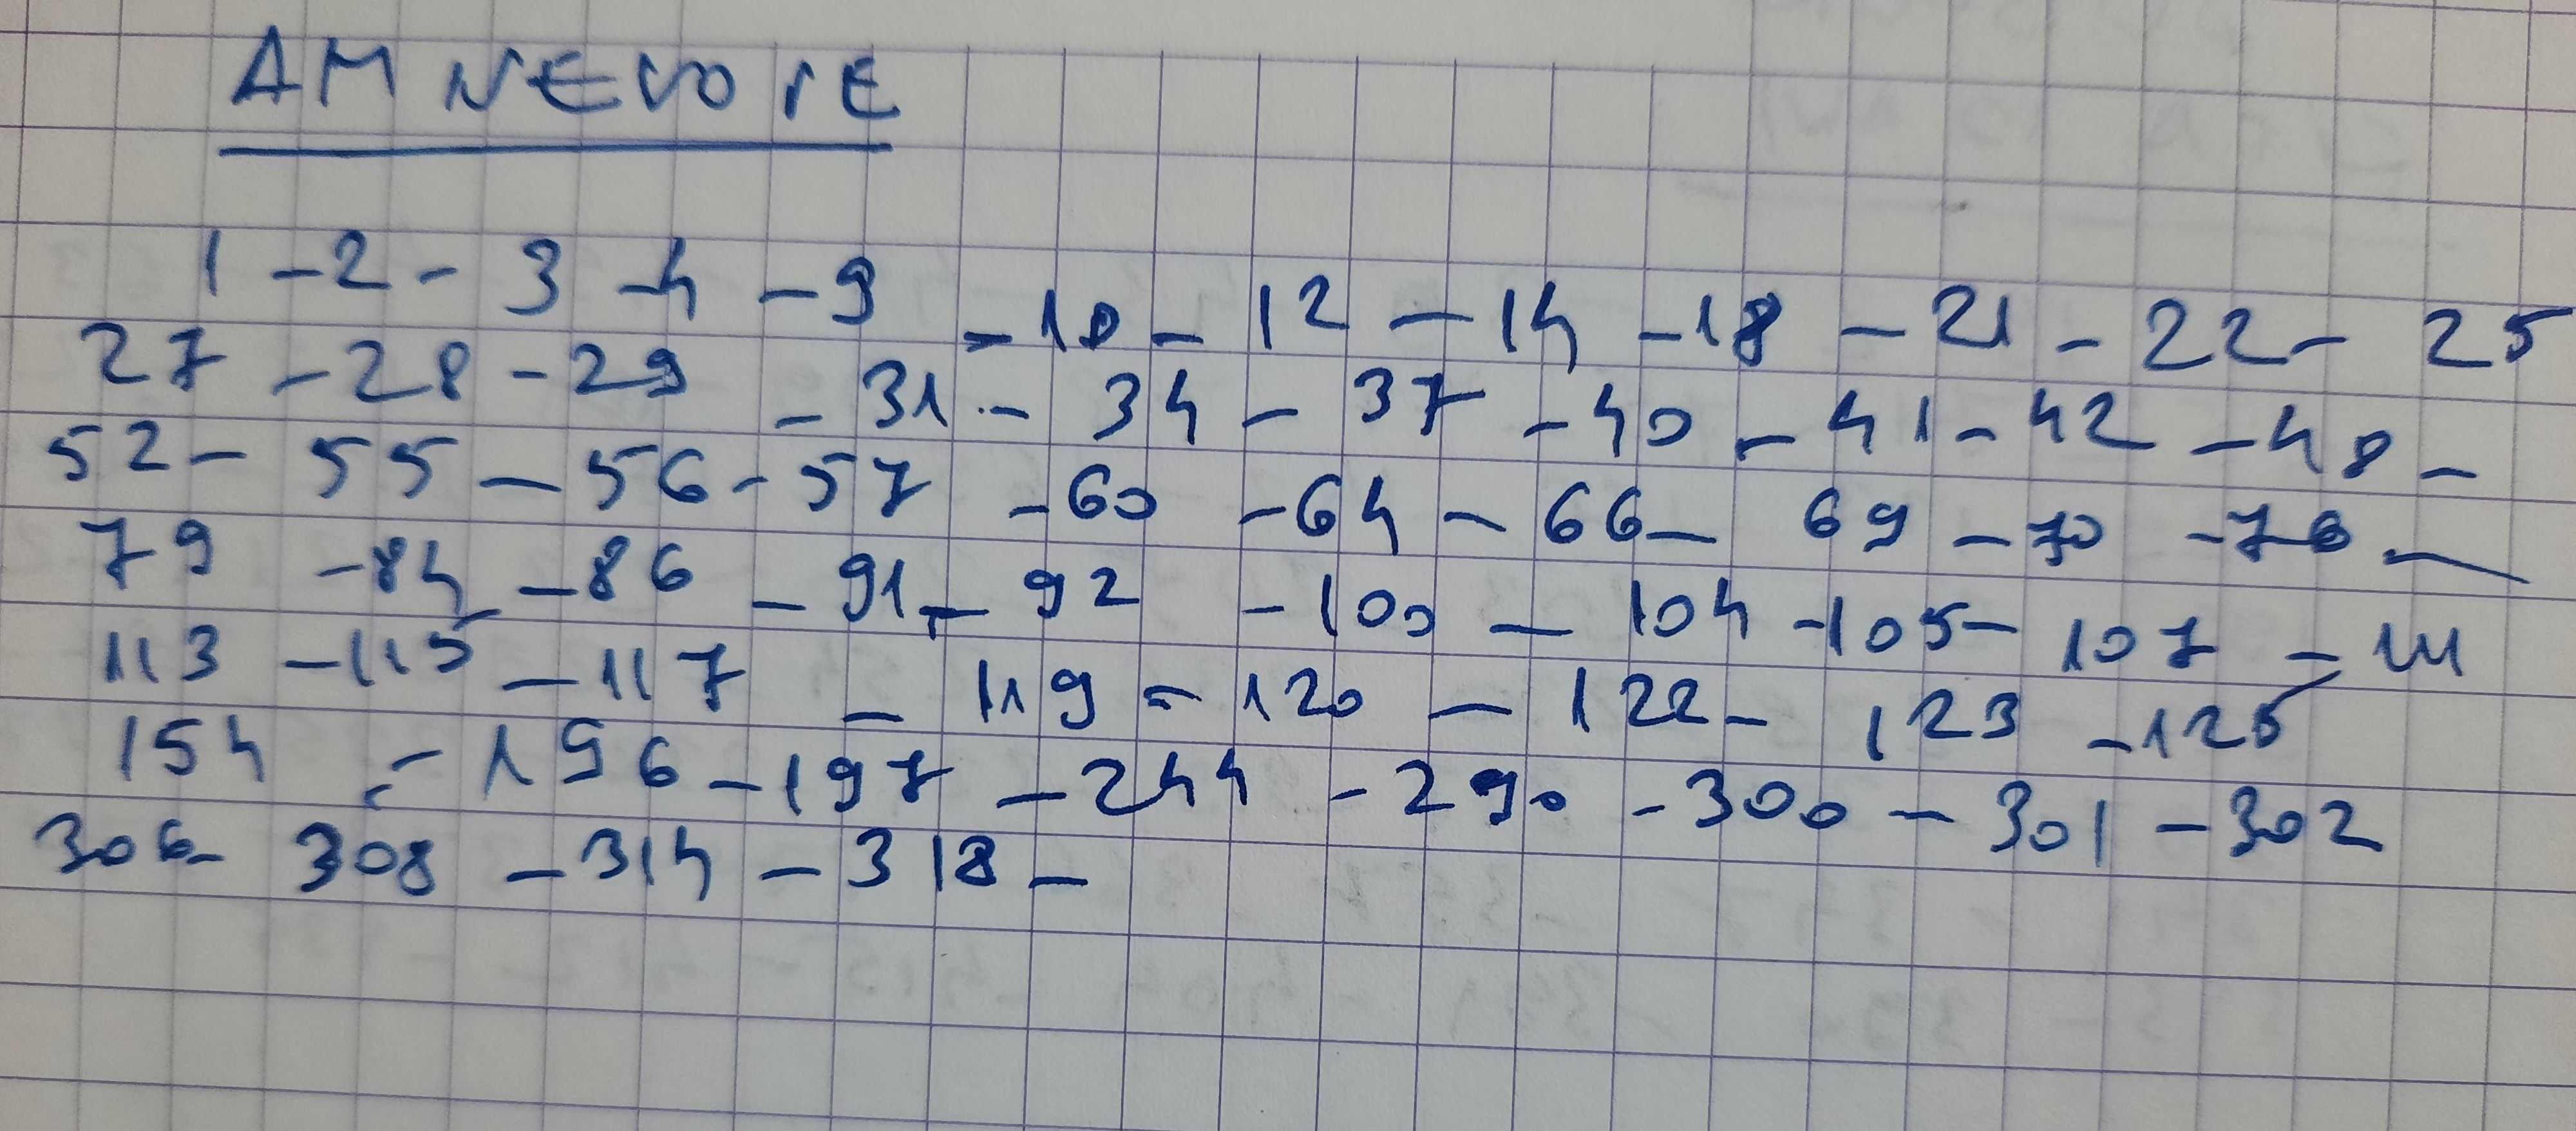 AM NEVOIE
1 - 2 - 3 - 4 - 9 - 10 - 12 - 14 - 18 - 21 - 22 - 25
27 - 28 - 29 - 31 - 34 - 37 - 40 - 41 - 42 - 48 -
52 - 55 - 56 - 57 - 60 - 64 - 66 - 69 - 70 - 78 -
79 - 84 - 86 - 91 - 92 - 100 - 104 - 105 - 107 - 111
113 - 115 - 117 - 119 - 120 - 122 - 123 - 125 -
154 - 196 - 197 - 244 - 290 - 300 - 301 - 302
306 - 308 - 314 - 318 -